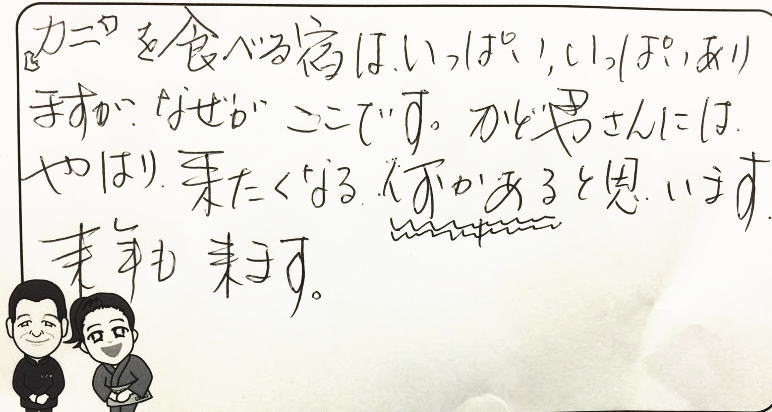 『カニ』を食べる宿は、いっぱい、いっぱいあり
ますが、なぜが ここです。かど男さんには、
やはり、来たくなる、何かあると思います。
来年も 来ます。